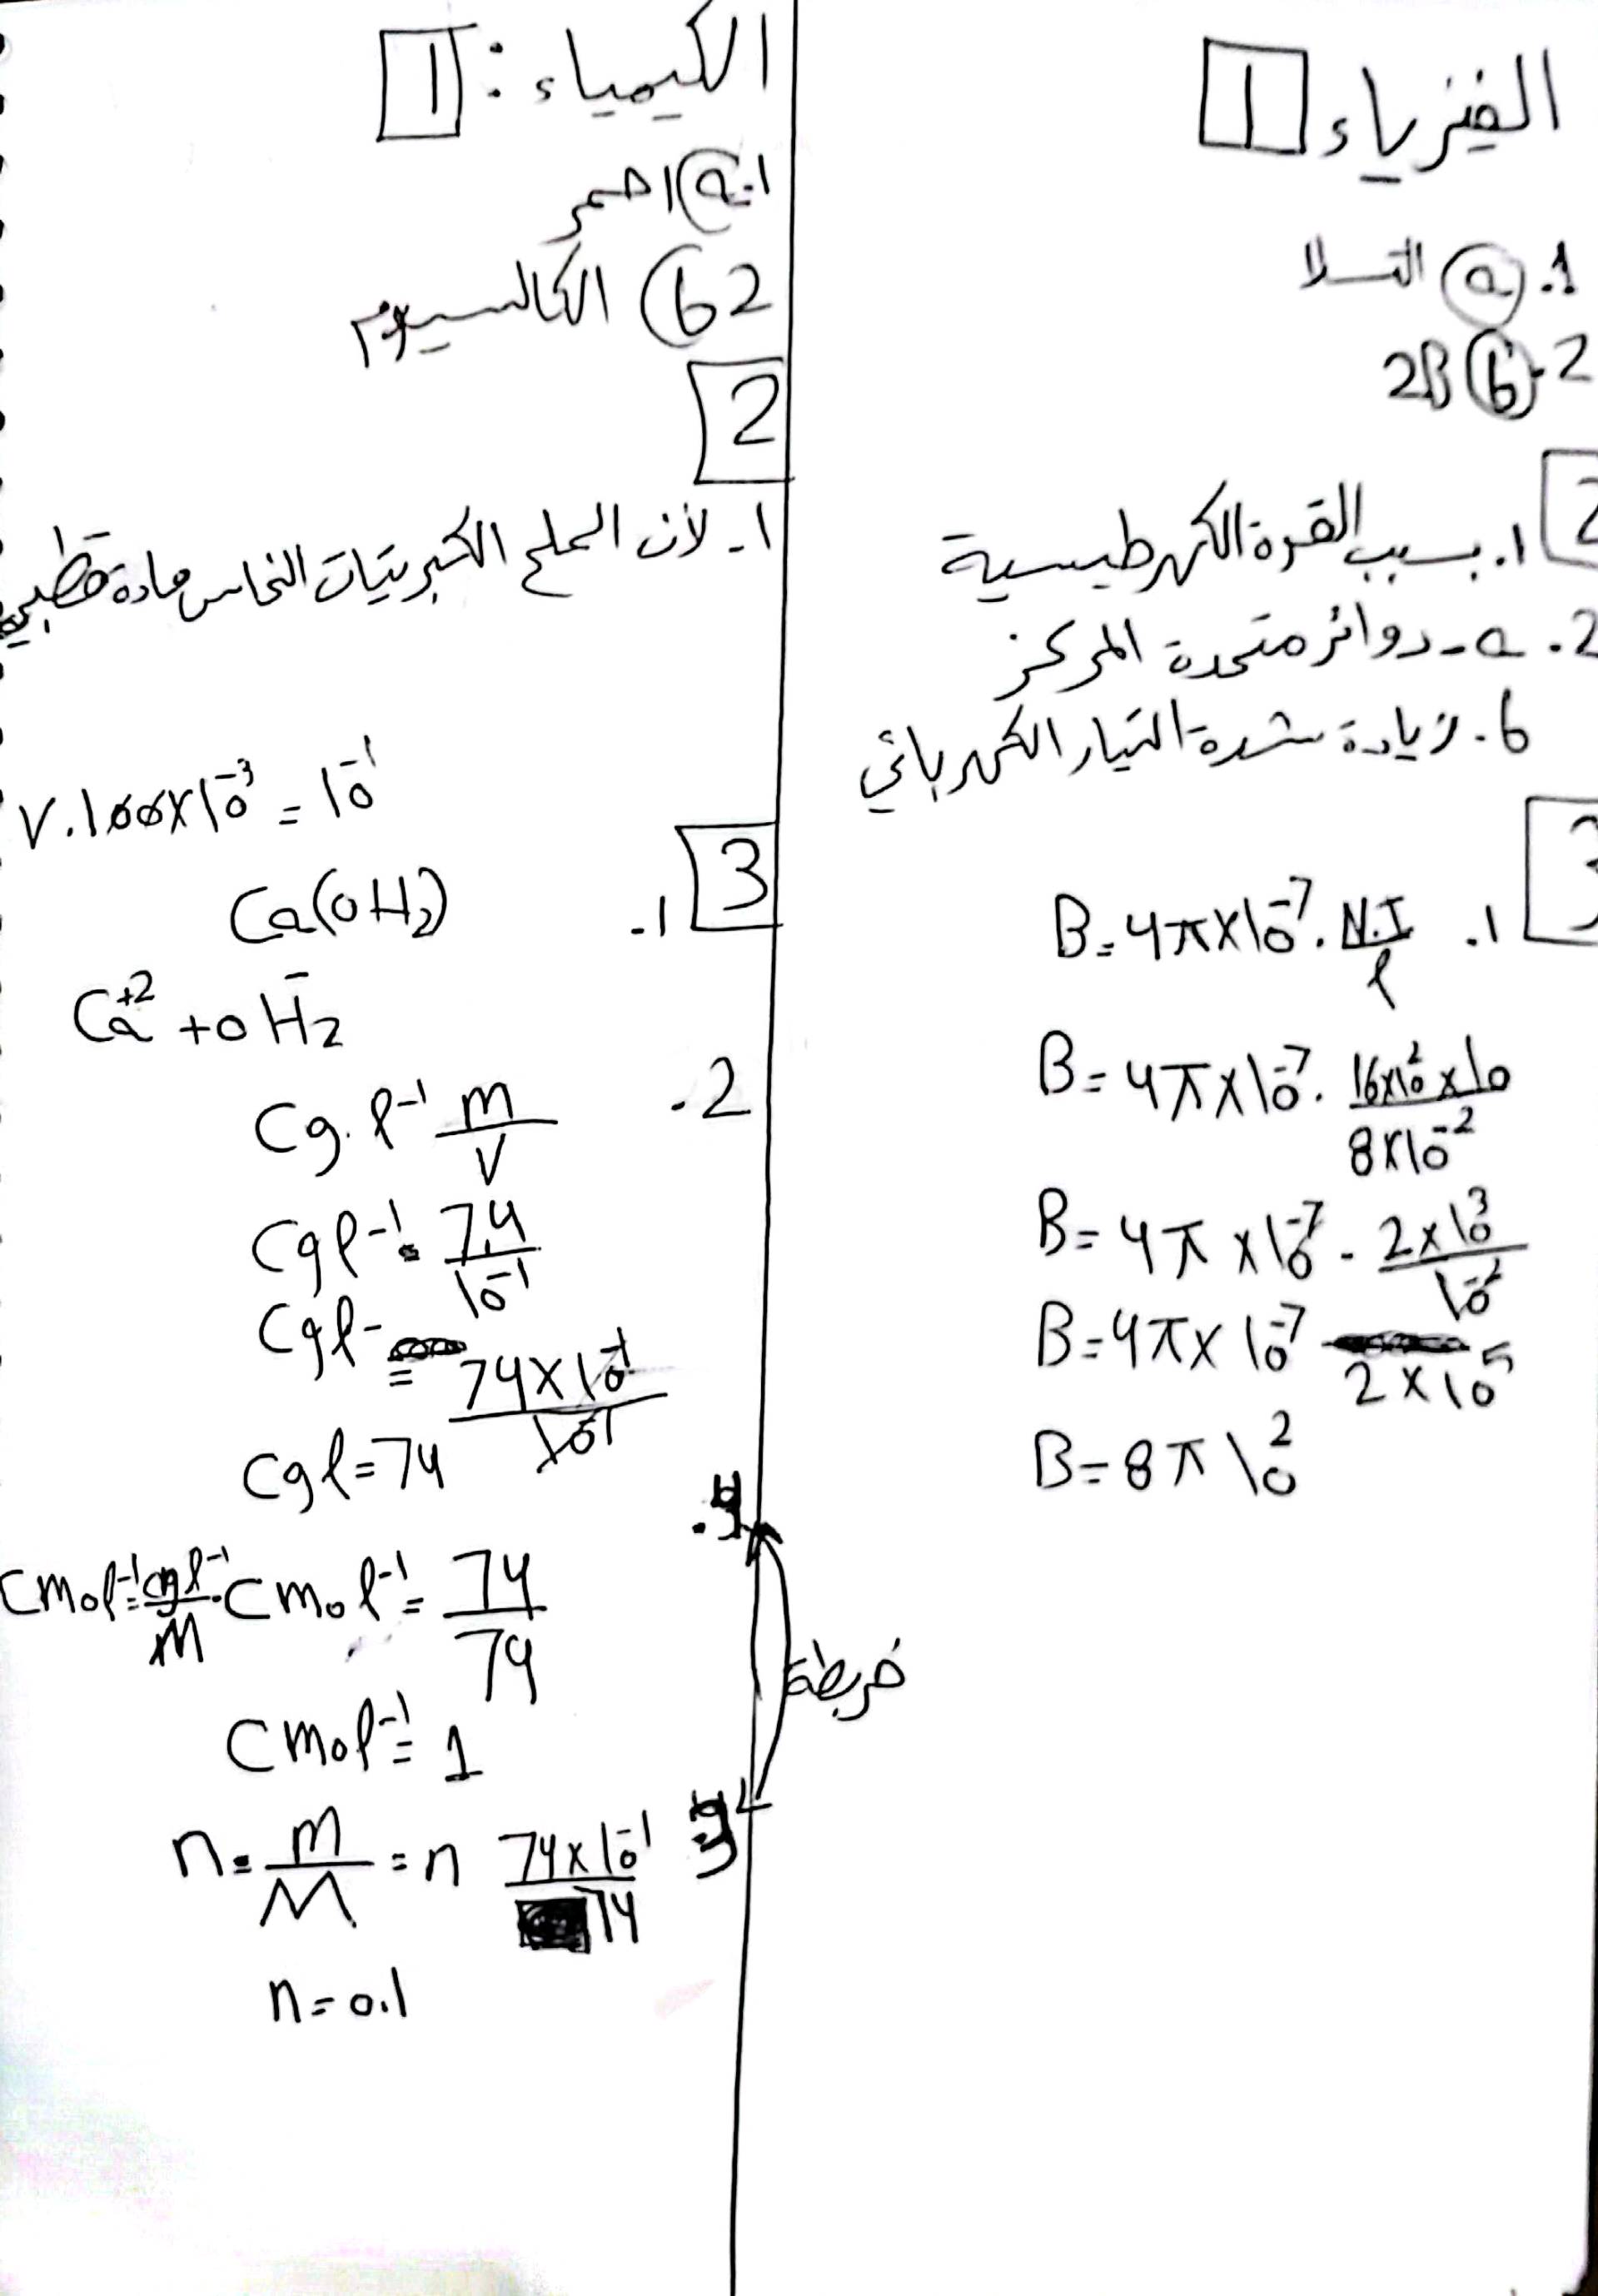 الفيزياء 1
1. a التسلا
2. b 2B
2
1. بسبب القوة الكهرطيسية
2. a - دوائر متحدة المركز
b. زيادة شدة التيار الكهربائي
3
1. B = 4π×10⁻⁷ . N.I/l
B = 4π×10⁻⁷ . 16×10² × 10 / 8×10⁻²
B = 4π×10⁻⁷ . 2×10³ / 10⁻²
B = 4π×10⁻⁷ 2×10⁵
B = 8π 10²
الكيمياء: 1
1. a احمر
2 b الكالسيوم
2
1- لأن الملح الكبريتات النحاس مادة
V.100×10⁻³ = 10⁻¹
3
1. Ca(OH₂)
Ca⁺² + OH⁻₂
2. Cg.l⁻¹ m/V
Cgl⁻¹ = 7,4/10⁻¹
Cgl- = 74×10⁻¹/10⁻¹
Cgl = 74
Cmol⁻¹ = Cgl⁻¹/M . Cmol⁻¹ = 74/74
خربطة
Cmol⁻¹ = 1
n = m/M = n 74×10⁻¹/74
n = 0.1